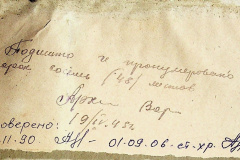 Подшито и пронумеровано
сорок восемь (48) листов
Арх
19/IV.45г.
оверено:
11.90. 01.09.06 - ст. хр.